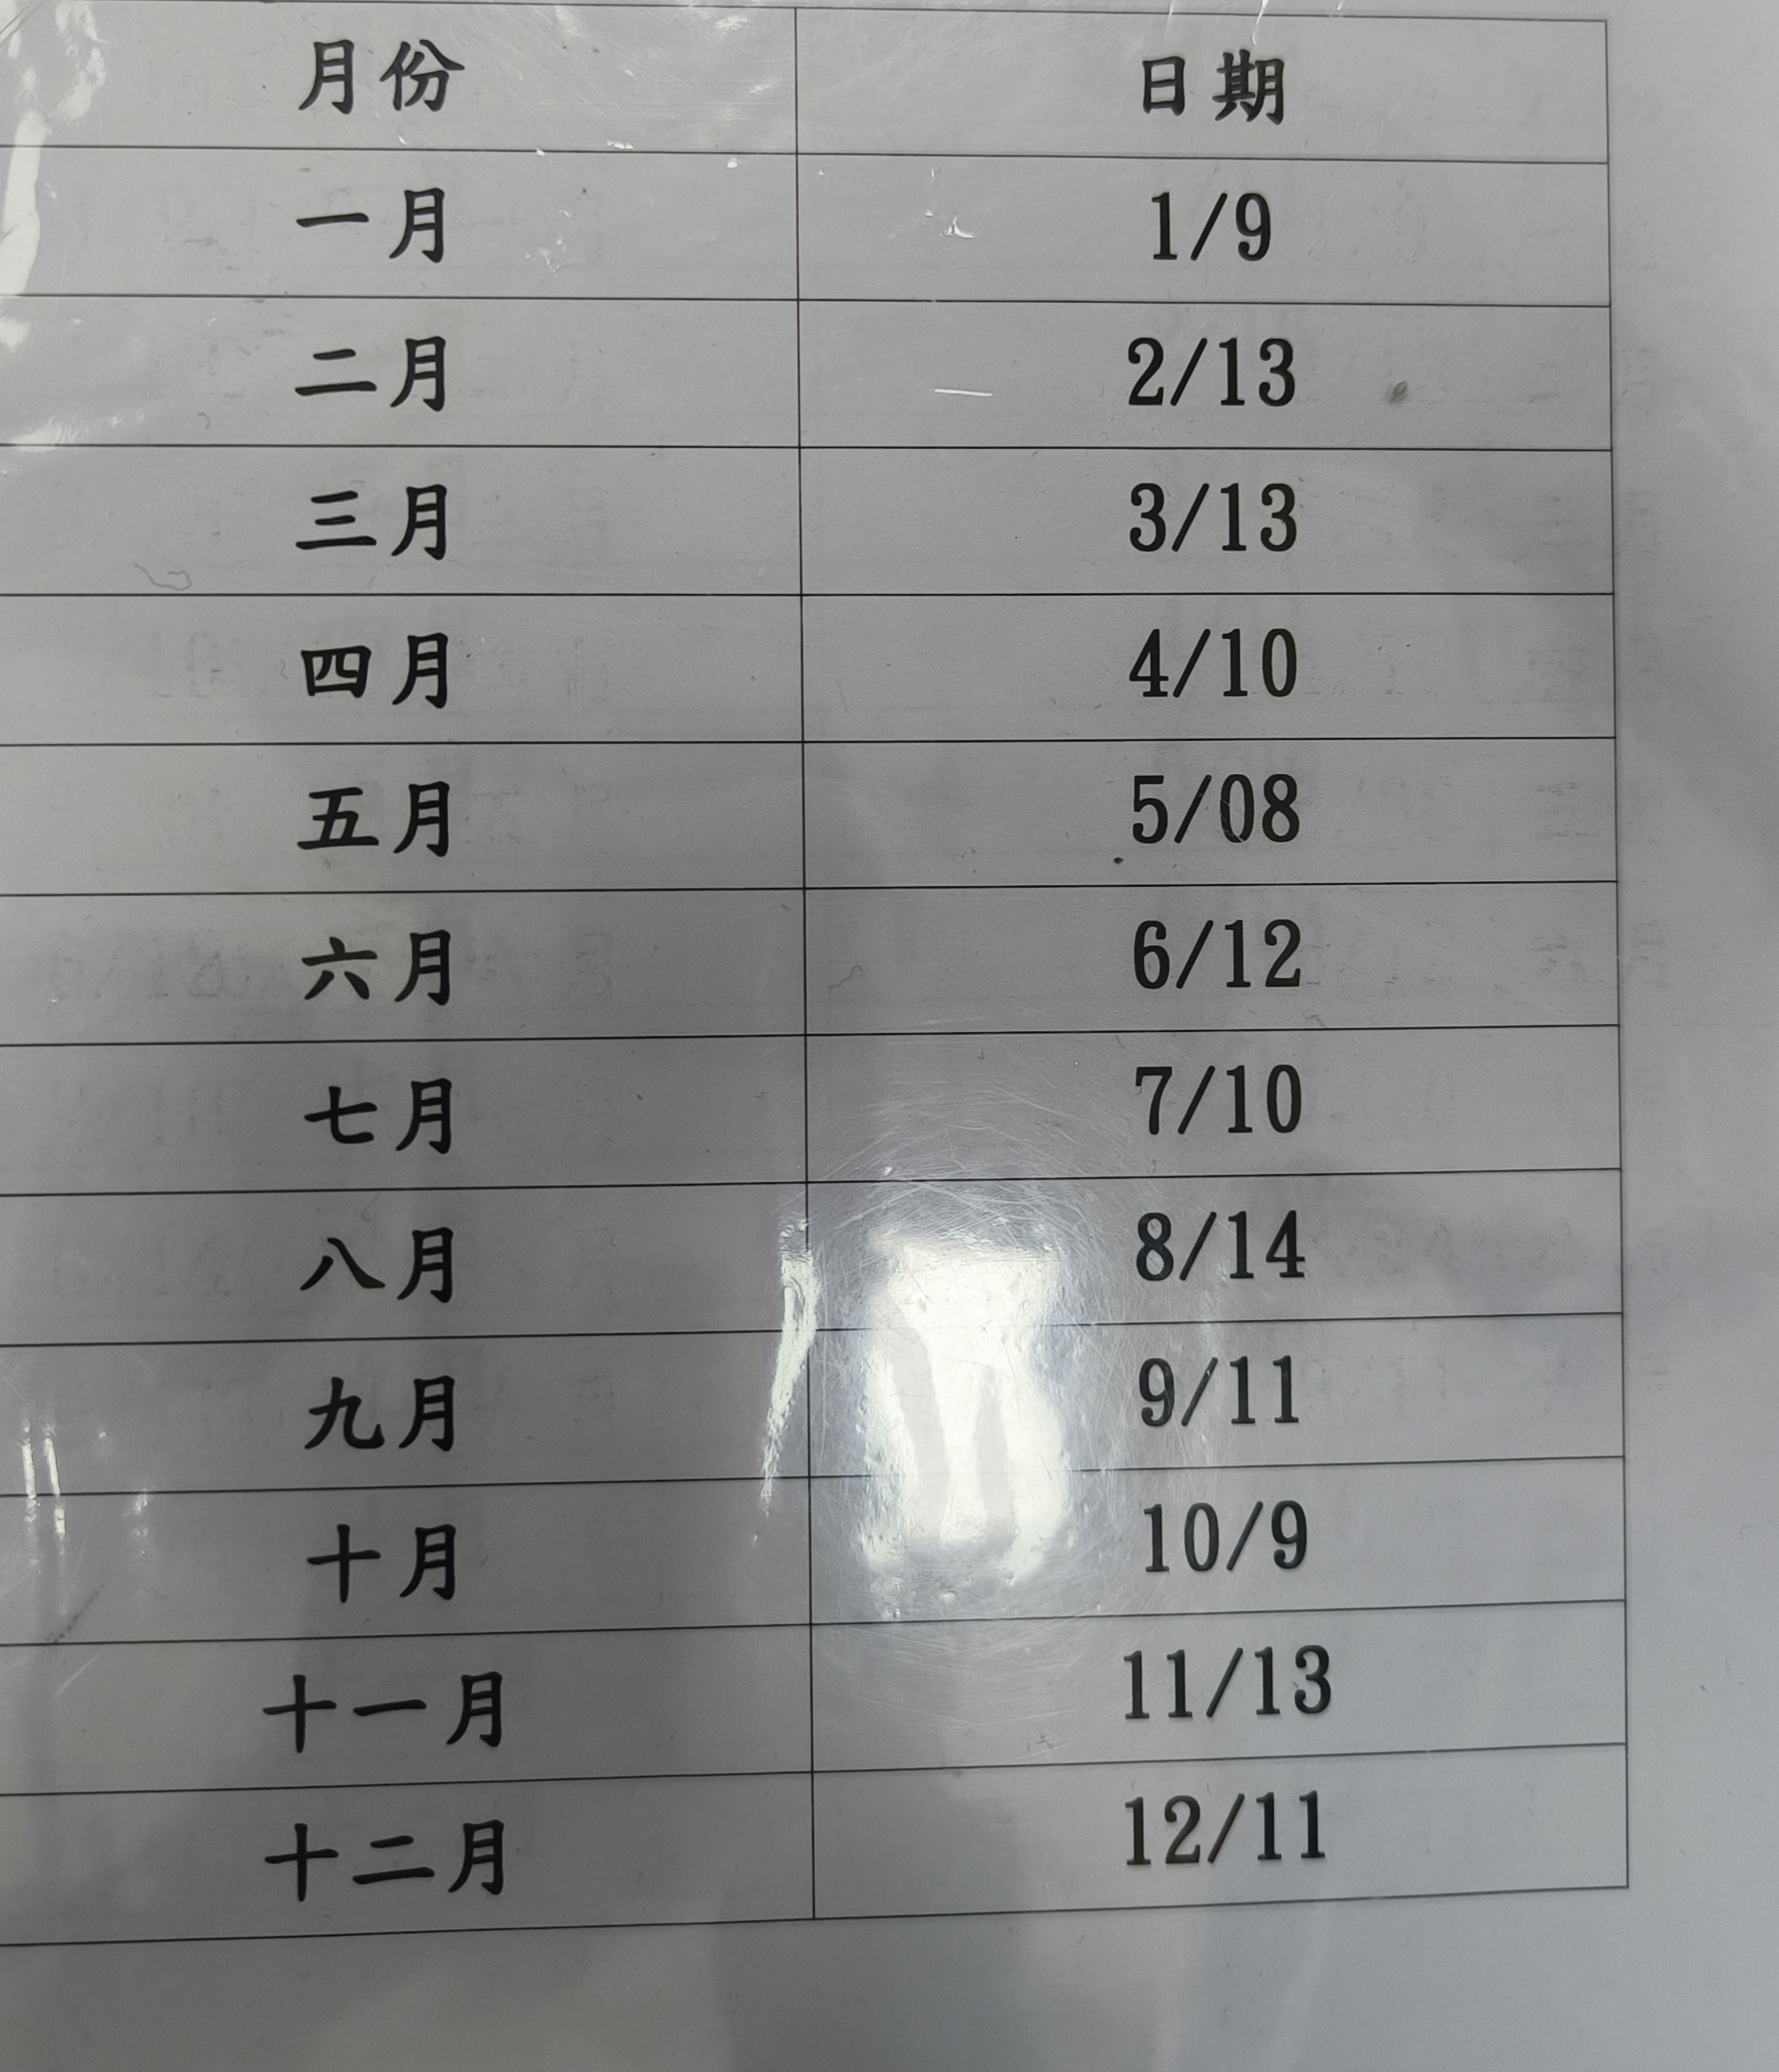 月份 日期
一月 1/9
二月 2/13
三月 3/13
四月 4/10
五月 5/08
六月 6/12
七月 7/10
八月 8/14
九月 9/11
十月 10/9
十一月 11/13
十二月 12/11